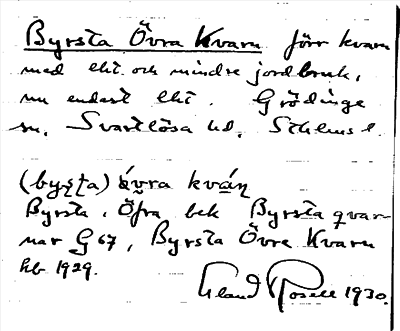 Byrsta Övra Kvarn förr kvarn
med eht. och mindre jordbruk,
nu endast eht. Grödinge
sn, Svartlösa hd. Sthlms l.
(byṣṭa) óvra kváṇ
Byrsta, Öfra bek Byrsta qvar-
nar G 67, Byrsta Övre Kvarn
hb 1929.
Claud Rosell 1930.